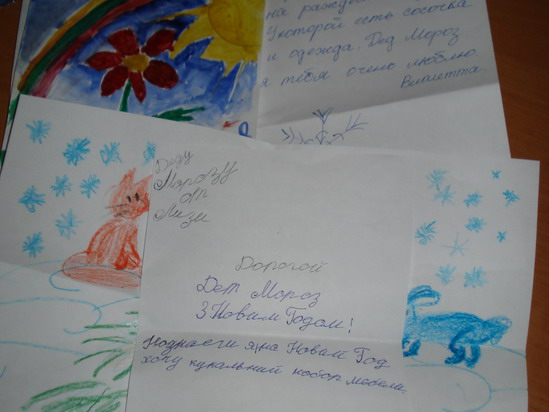 на
У которой есть сосочка
и одежда. Дед Мороз
я тебя очень люблю.
Виолетта.
Деду
Морозу
от
Лизи
Дорогой
Дет Мороз
З Новим Годом!
я на Новий Год
хочу кукальний набор мебели.